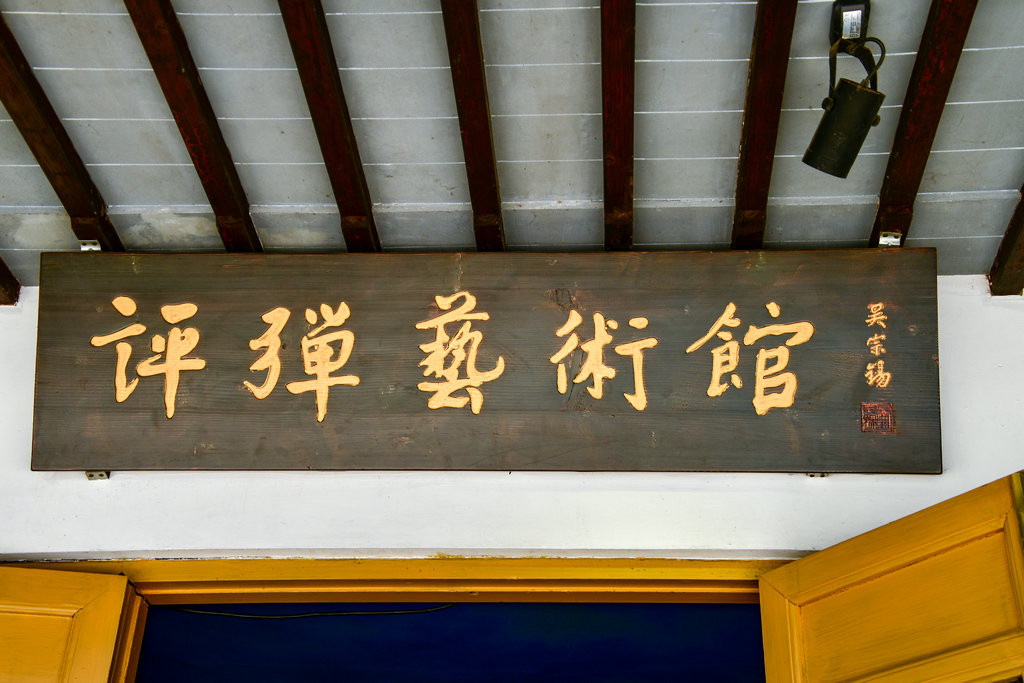 評彈藝術館
吳宗锡